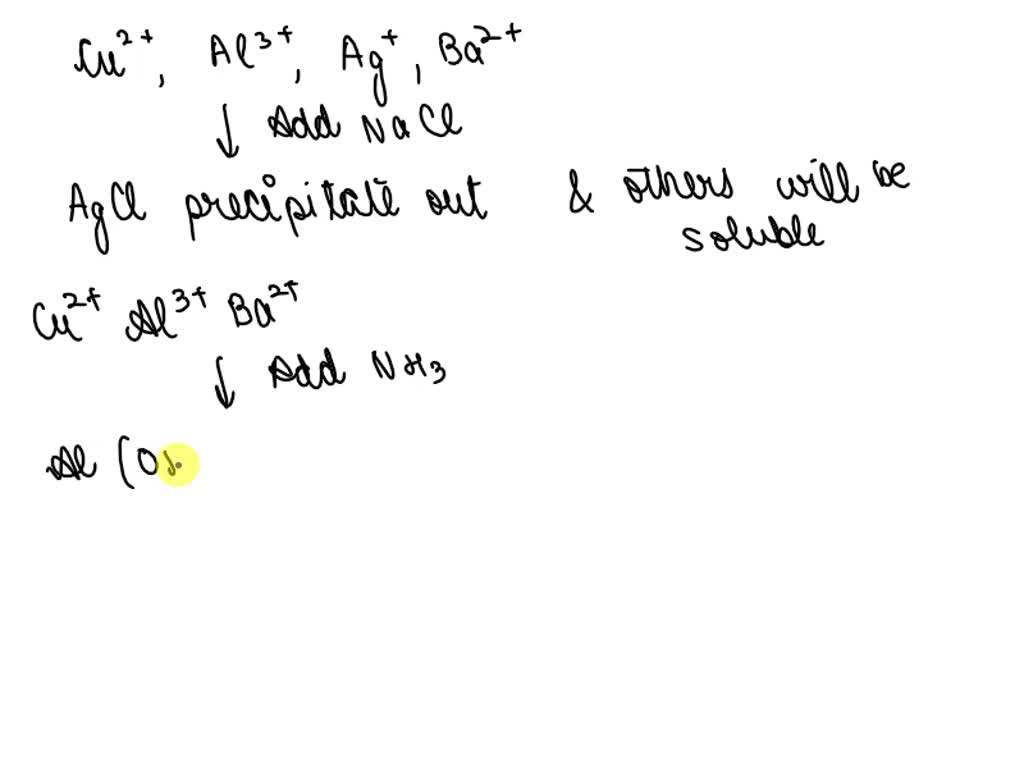 Cu²⁺, Al³⁺, Ag⁺, Ba²⁺
↓ Add NaCl
AgCl precipitate out & others will be
soluble
Cu²⁺ Al³⁺ Ba²⁺
↓ Add NH₃
Al (O